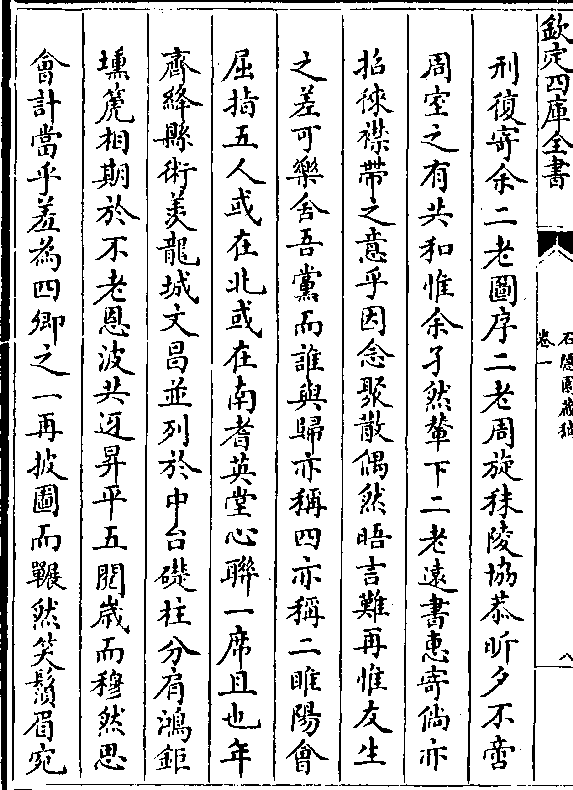 欽定四庫全書
石隱園藏稿
卷一
八
刑復寄余二老圖序二老周旋秣陵協恭昕夕不啻
周室之有共和惟余孑然輦下二老遠書惠寄倘亦
招徠襟帶之意乎因念聚散偶然晤言難再惟友生
之差可樂舍吾黨而誰與歸亦稱四亦稱二睢陽會
屈指五人或在北或在南耆英堂心聯一席且也年
齊絳縣術羨龍城文昌並列於中台礎柱分肩鴻鉅
壎箎相期於不老恩波共迓昇平五閱歲而穆然思
會計當乎羞為四卿之一再披圖而冁然笑鬚眉宛